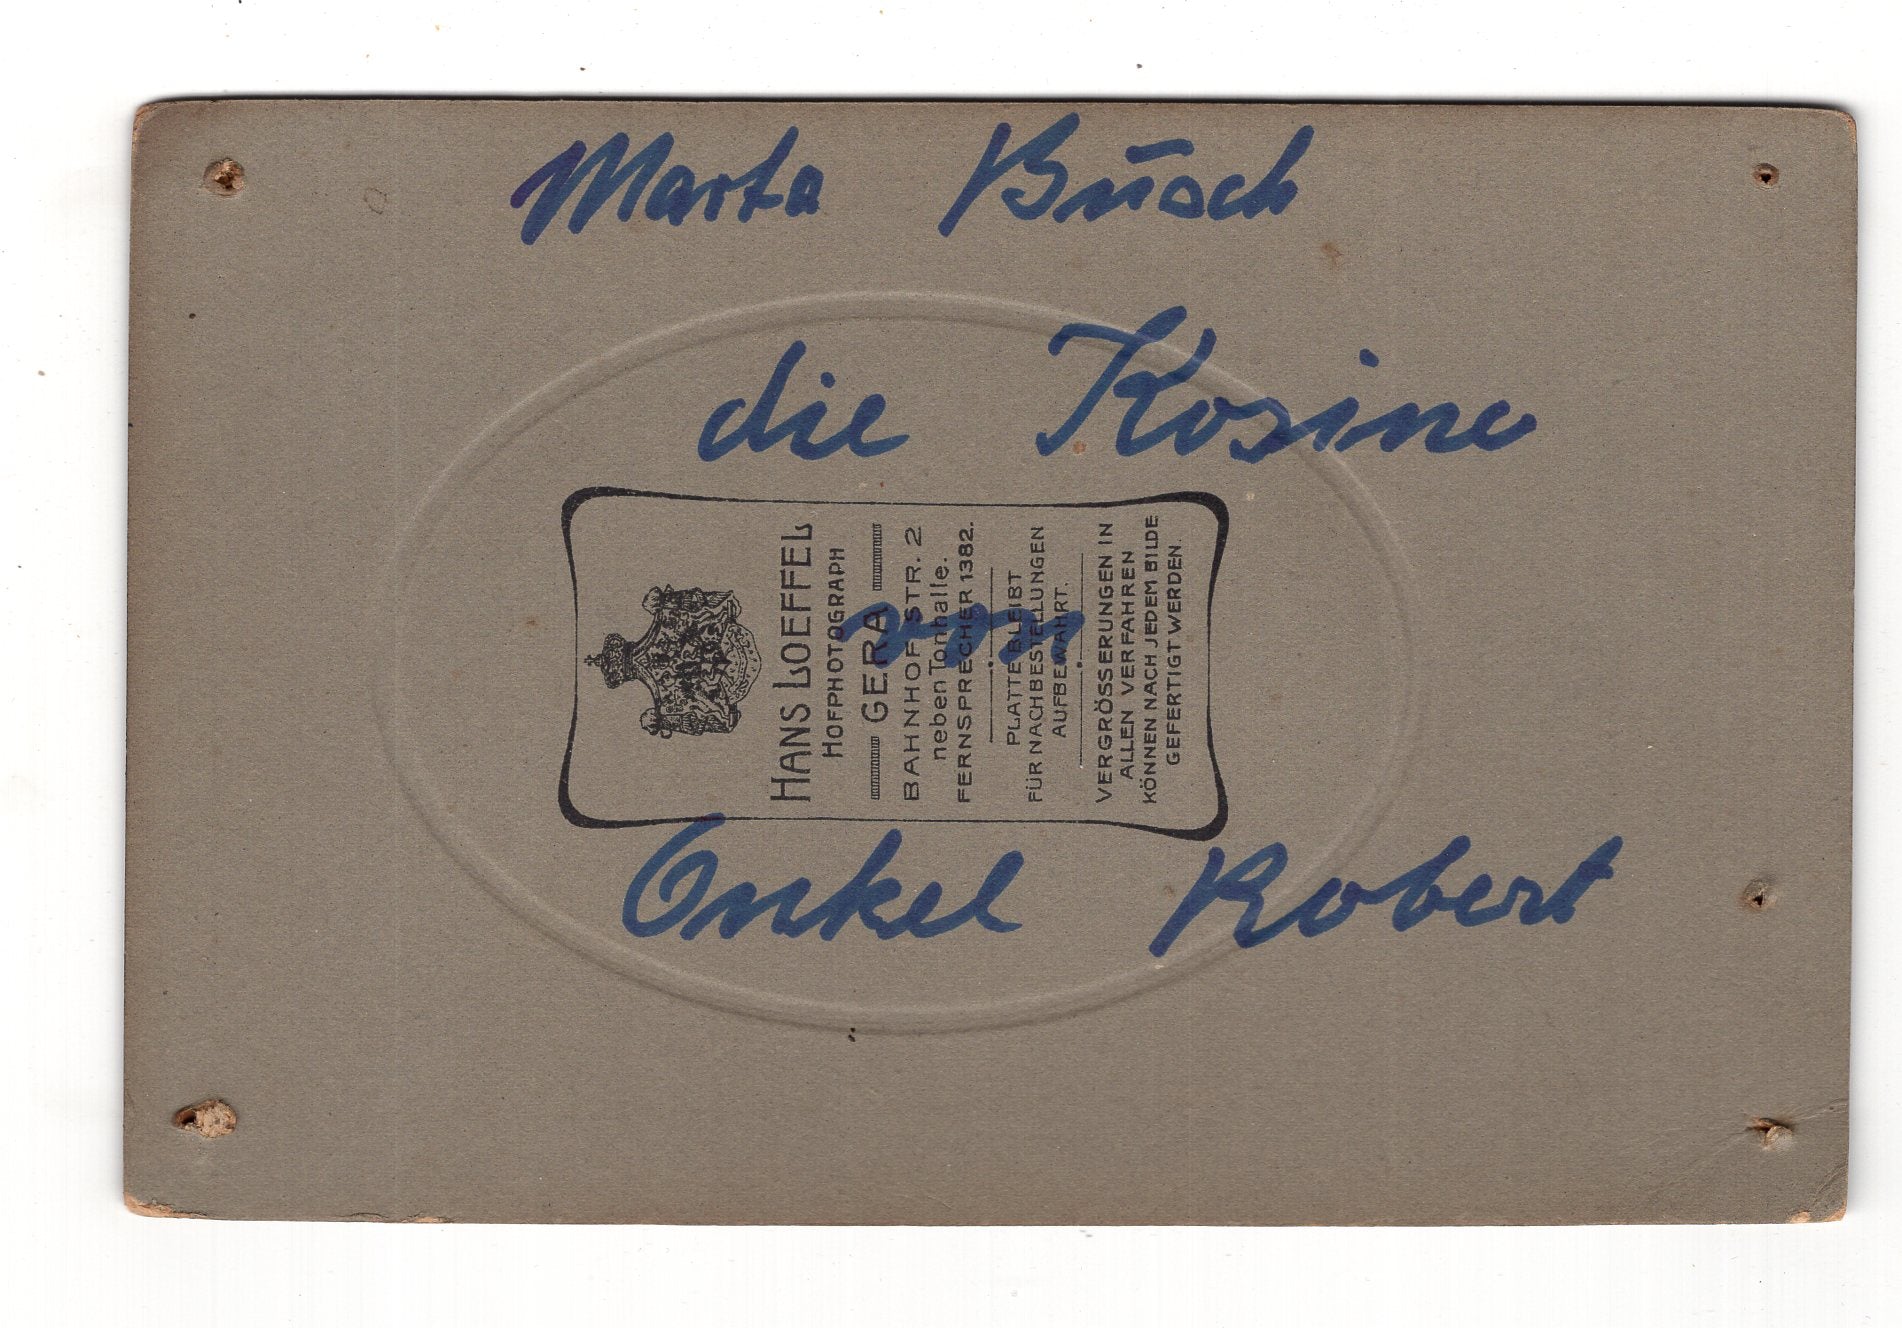 Marta Busch
die Kosine
von
Onkel Robert
HANS LOEFFEL
HOFPHOTOGRAPH
GERA
BAHNHOFSTR. 2
neben Tonhalle.
FERNSPRECHER 1382.
PLATTE BLEIBT
FÜR NACHBESTELLUNGEN
AUFBEWAHRT.
VERGRÖSSERUNGEN IN
ALLEN VERFAHREN
KÖNNEN NACH JEDEM BILDE
GEFERTIGT WERDEN.